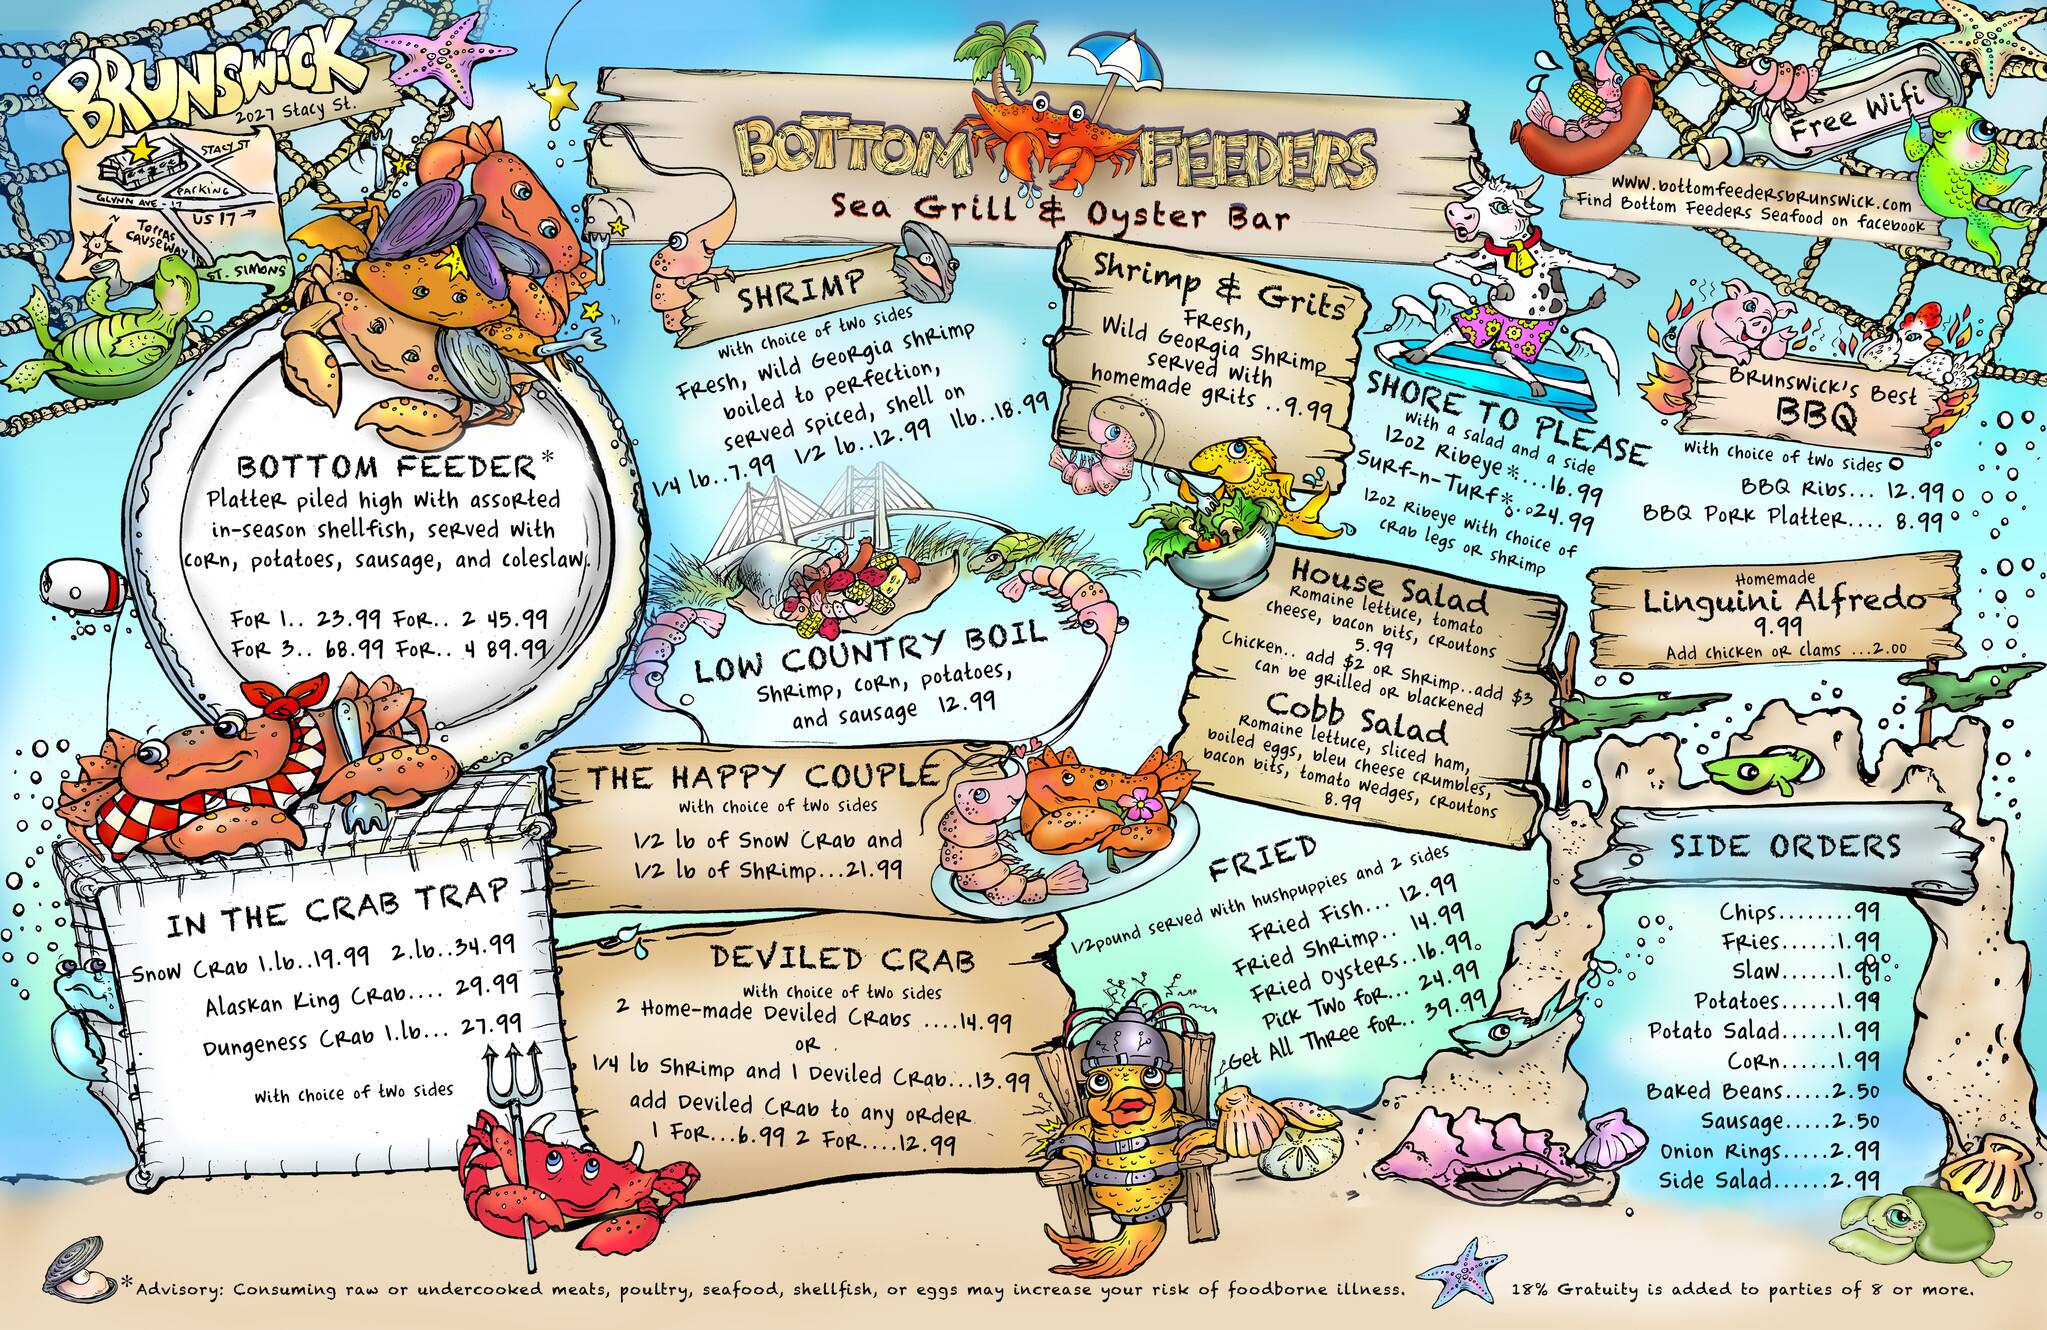 BRUNSWICK
2027 Stacy St.
STACY ST
PARKING
GLYNN AVE - 17
US 17 →
TORRAS
CAUSEWAY
ST. SIMONS
BOTTOM FEEDERS
Sea Grill & Oyster Bar
Free Wifi
www.bottomfeedersbrunswick.com
Find Bottom Feeders Seafood on facebook
BOTTOM FEEDER*
Platter piled high with assorted
in-season shellfish, served with
corn, potatoes, sausage, and coleslaw.
For 1.. 23.99 For.. 2 45.99
For 3.. 68.99 For.. 4 89.99
SHRIMP
with choice of two sides
Fresh, wild Georgia shrimp
boiled to perfection,
served spiced, shell on
1/4 lb..7.99 1/2 lb..12.99 1lb..18.99
Shrimp & Grits
Fresh,
Wild Georgia Shrimp
served with
homemade grits ..9.99
SHORE TO PLEASE
With a salad and a side
12oz Ribeye*...16.99
Surf-n-Turf*..24.99
12oz Ribeye with choice of
crab legs or shrimp
Brunswick's Best
BBQ
With choice of two sides
BBQ Ribs... 12.99
BBQ Pork Platter.... 8.99
LOW COUNTRY BOIL
Shrimp, corn, potatoes,
and sausage 12.99
House Salad
Romaine lettuce, tomato
cheese, bacon bits, croutons
5.99
Chicken.. add $2 or Shrimp..add $3
can be grilled or blackened
Cobb Salad
Romaine lettuce, sliced ham,
boiled eggs, bleu cheese crumbles,
bacon bits, tomato wedges, croutons
8.99
Homemade
Linguini Alfredo
9.99
Add chicken or clams ...2.00
THE HAPPY COUPLE
With choice of two sides
1/2 lb of Snow Crab and
1/2 lb of Shrimp...21.99
IN THE CRAB TRAP
Snow Crab 1.lb..19.99 2.lb..34.99
Alaskan King Crab.... 29.99
Dungeness Crab 1.lb... 27.99
With choice of two sides
DEVILED CRAB
With choice of two sides
2 Home-made Deviled Crabs ....14.99
OR
1/4 lb Shrimp and 1 Deviled Crab...13.99
add Deviled Crab to any order
1 For...6.99 2 For....12.99
FRIED
1/2pound served with hushpuppies and 2 sides
Fried Fish... 12.99
Fried Shrimp.. 14.99
Fried Oysters..16.99
Pick Two for... 24.99
Get All Three for.. 39.99
SIDE ORDERS
Chips........99
Fries......1.99
Slaw......1.99
Potatoes......1.99
Potato Salad.....1.99
Corn....1.99
Baked Beans.....2.50
Sausage.....2.50
Onion Rings.....2.99
Side Salad......2.99
*Advisory: Consuming raw or undercooked meats, poultry, seafood, shellfish, or eggs may increase your risk of foodborne illness.
18% Gratuity is added to parties of 8 or more.